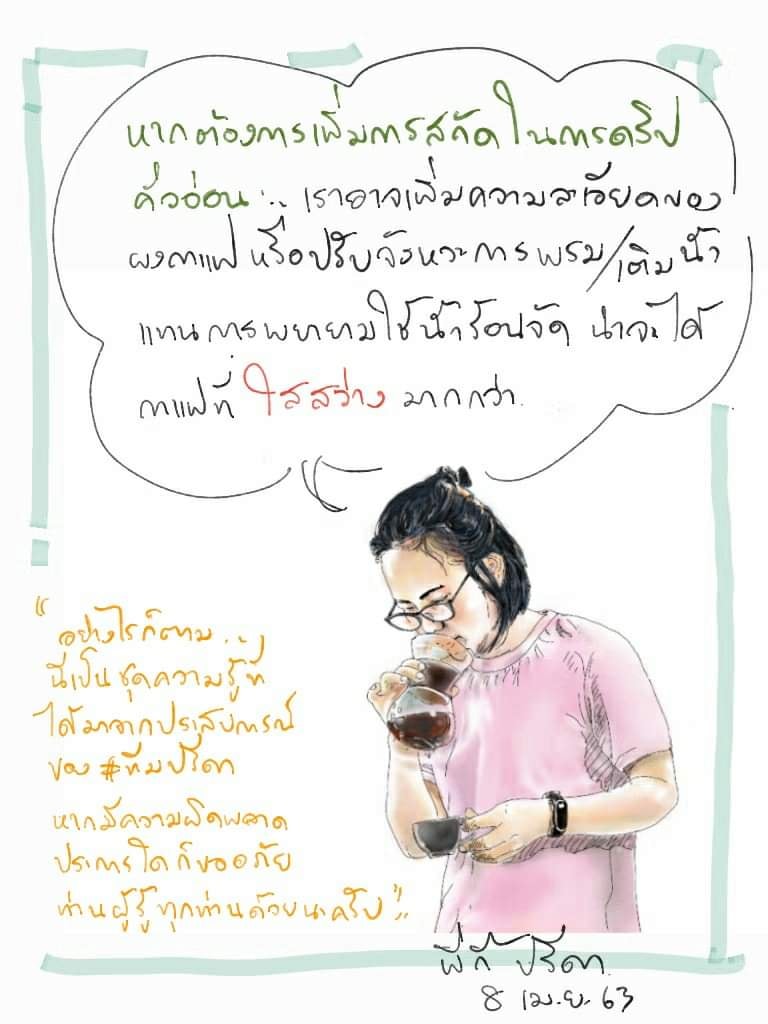 หากต้องการเพิ่มการสกัดในการดริป
คั่วอ่อน... เราอาจเพิ่มความละเอียดของ
ผงกาแฟ หรือปรับจังหวะการพรม/เติมน้ำ
แทนการพยายามใช้น้ำร้อนจัด น่าจะได้
กาแฟที่ ใสสว่าง มากกว่า.
"อย่างไรก็ตาม...
นี่เป็นชุดความรู้ที่
ได้มาจากประสบการณ์
ของ #ทีมปรีดา
หากมีความผิดพลาด
ประการใดก็ขออภัย
ท่านผู้รู้ทุกท่านด้วยนะครับ"
ปรีดา.
8 เม.ย. 63